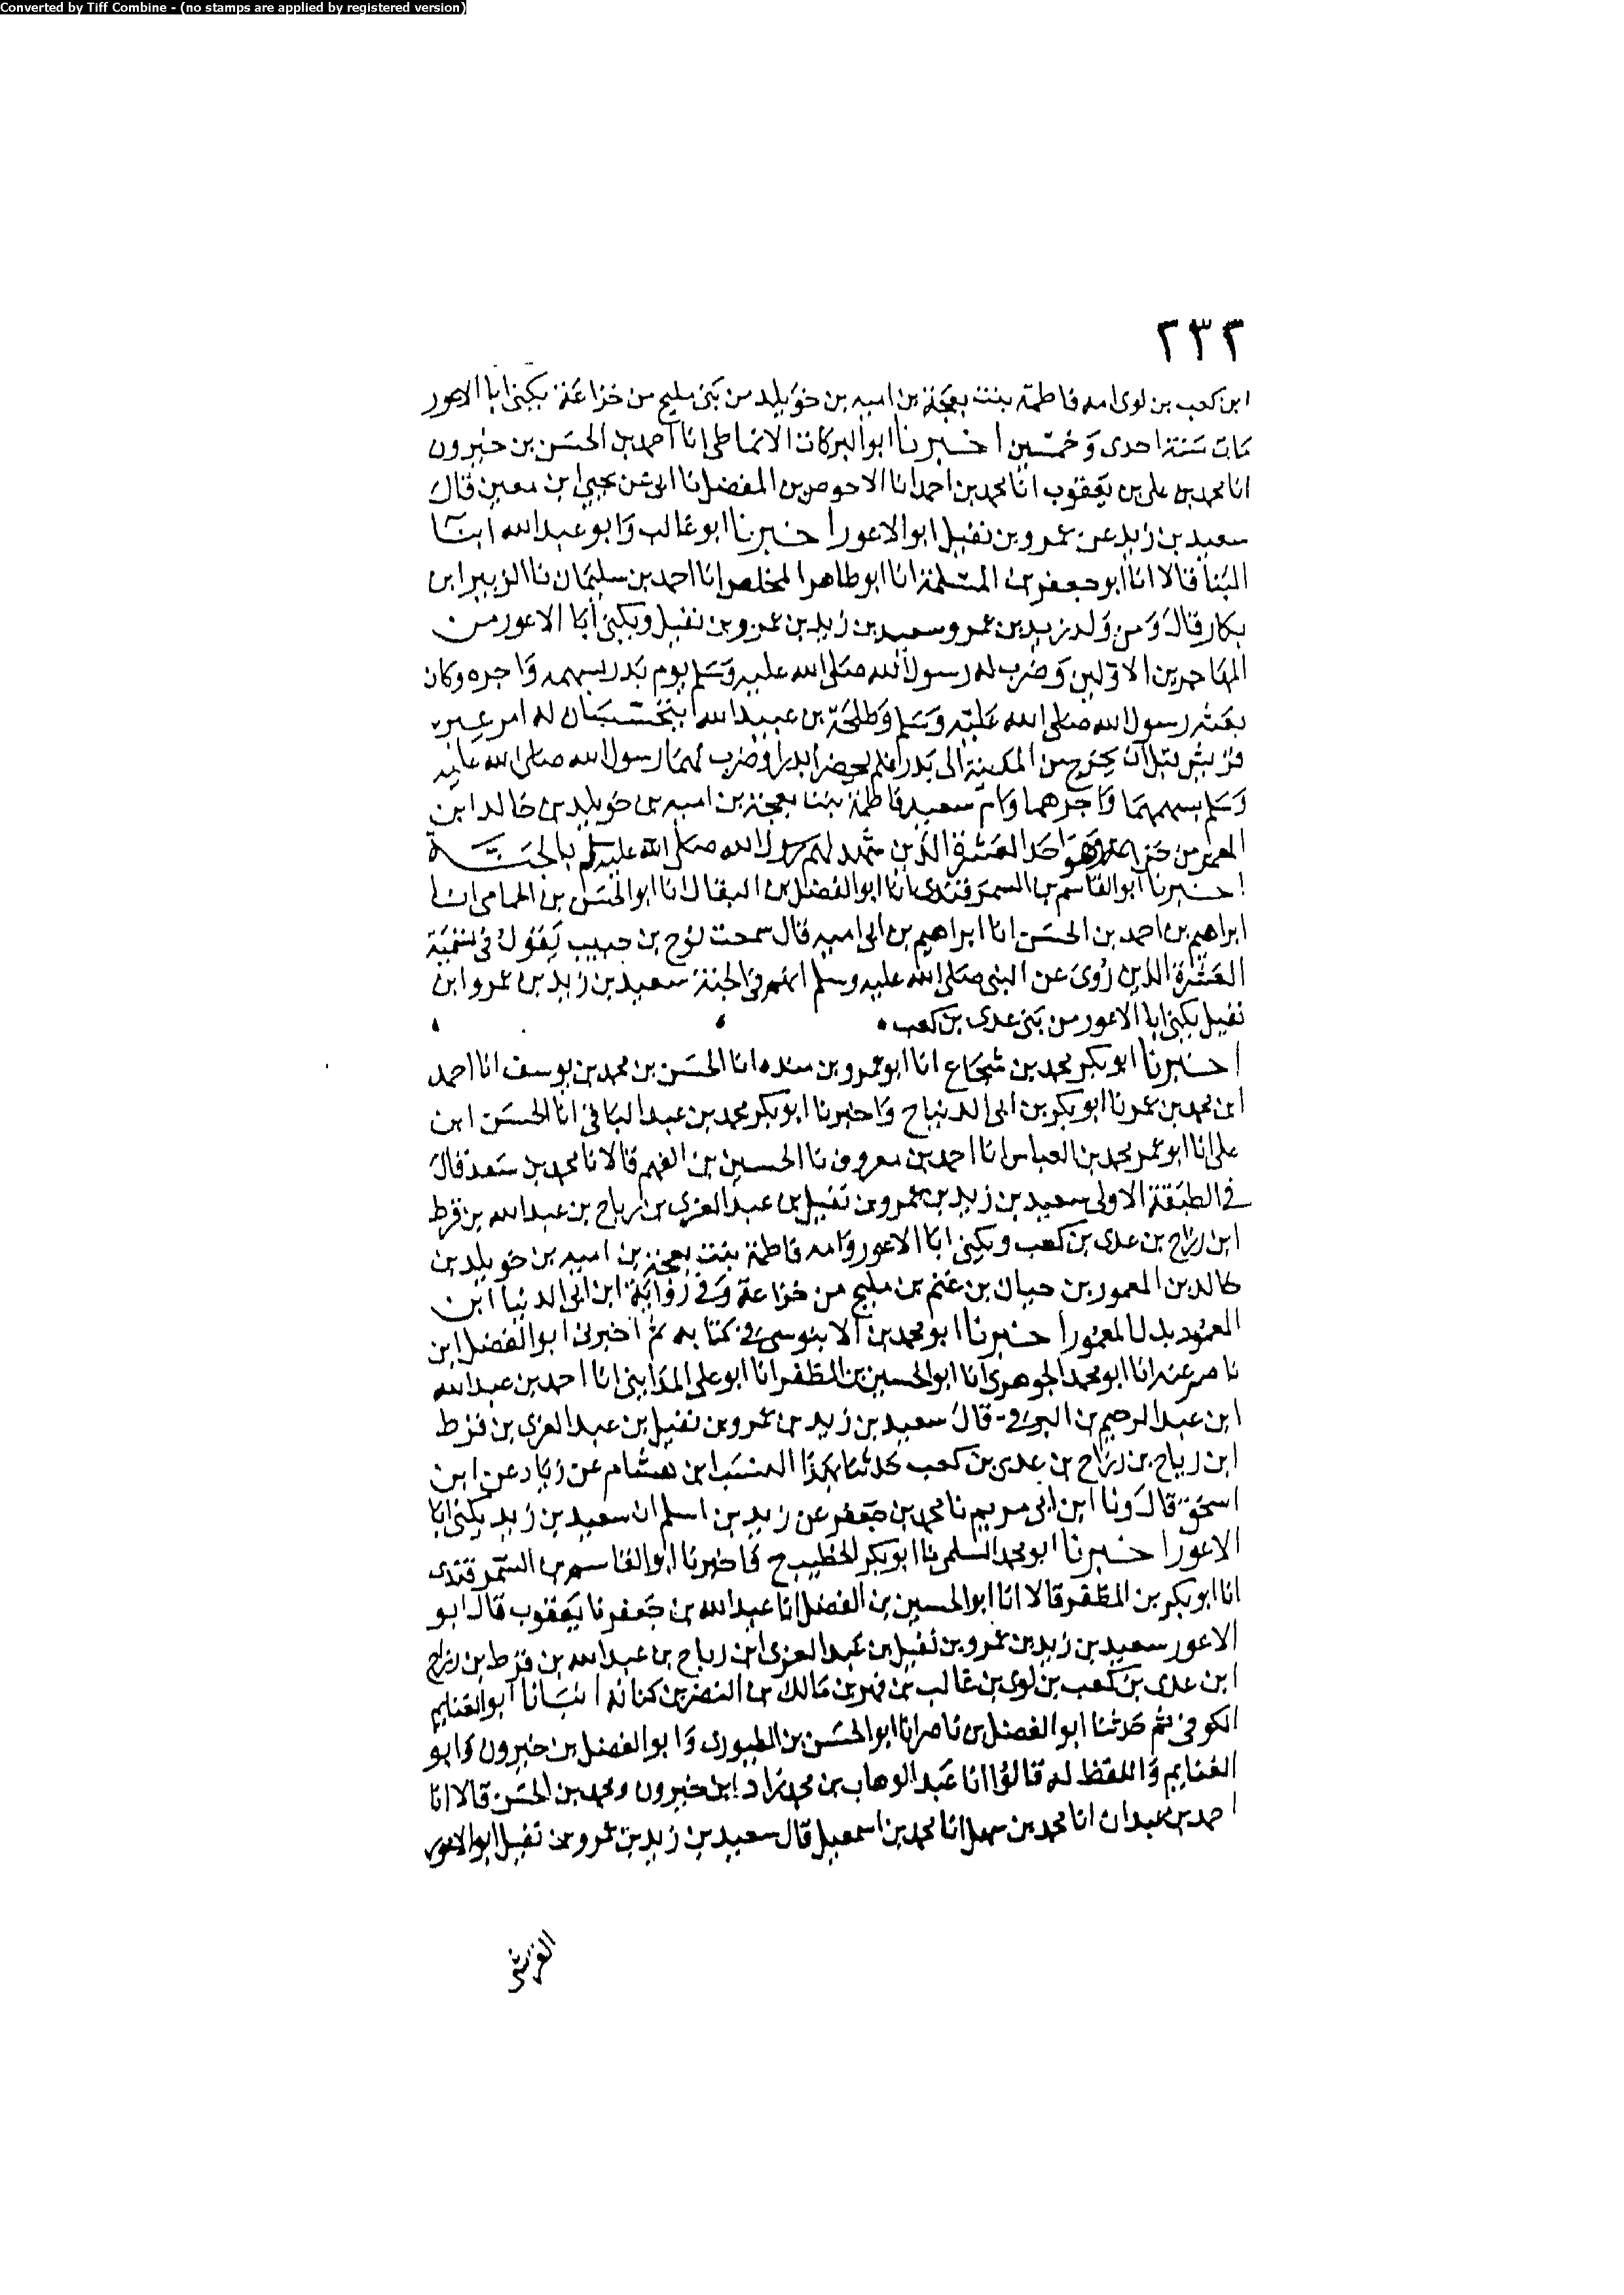 Converted by Tiff Combine - (no stamps are applied by registered version)
٢٣٢
ابن كعب بن لوى امه فاطمة بنت بعجة بن اميه بن خويلد من بنى مليح من خزاعة يكنى ابا الاعور
مات سنة احدى وخمسين اخبرنا ابو البركات الانماطى انا احمد بن الحسن بن خيرون
انا محمد بن على بن يعقوب انا محمد بن احمد انا الاحوص بن المفضل نا ابى عن يحيى ابن معين قال
سعيد بن زيد عن عمرو بن نفيل ابو الاعور اخبرنا ابو غالب وابو عبد الله ابنا
البنا قالا انا ابو جعفر بن المسلمة انا ابو طاهر المخلص انا احمد بن سليمان نا الزبير ابن
بكار قال ومن ولد زيد بن عمرو سعيد بن زيد بن عمرو بن نفيل ويكنى ابا الاعور من
المهاجرين الاولين وضرب له رسول الله صلى الله عليه وسلم يوم بدر بسهمه واجره وكان
بعثه رسول الله صلى الله عليه وسلم وطلحة بن عبيد الله يتحسسان له امر عير
قريش قبل ان يخرج من المدينة الى بدر فلم يحضرا بدرا وضرب لهما رسول الله صلى الله عليه
وسلم بسهمهما واجرهما وام سعيد فاطمة بنت بعجة بن اميه بن خويلد بن خالد ابن
المعمر من خزاعة وهو احد العشرة الذين شهد لهم رسول الله صلى الله عليه وسلم بالجنة
اخبرنا ابو القاسم بن السمرقندى انا ابو الفضل بن البقال انا ابو الحسن بن الحمامى انا
ابراهيم بن احمد بن الحسن انا ابراهيم بن ابى اميه قال سمعت نوح بن حبيب يقول فى تسمية
العشرة الذين روى عن النبى صلى الله عليه وسلم انهم فى الجنة سعيد بن زيد بن عمرو ابن
نفيل يكنى ابا الاعور من بنى عدى بن كعب
اخبرنا ابو بكر محمد بن شجاع انا ابو عمرو بن منده انا الحسن بن محمد بن يوسف انا احمد
ابن محمد بن عمر نا ابو بكر بن ابى الدنيا ح واخبرنا ابو بكر محمد بن عبد الباقى انا الحسن ابن
على انا ابو عمر محمد بن العباس انا احمد بن معروف نا الحسين بن الفهم قالا نا محمد بن سعد قال
فى الطبقة الاولى سعيد بن زيد بن عمرو بن نفيل بن عبد العزى بن رباح بن عبد الله بن قرط
ابن رزاح بن عدى بن كعب ويكنى ابا الاعور وامه فاطمة بنت بعجة بن اميه بن خويلد بن
خالد بن المعمور بن حيان بن غنم بن مليح من خزاعة وفى رواية ابن ابى الدنيا ابن
المعمور اخبرنا ابو محمد بن الابنوسى فى كتابه ثم اخبرنى ابو الفضل ابن
ناصر عنه انا ابو محمد الجوهرى انا ابو الحسين بن المظفر انا ابو على المداينى انا احمد بن عبد الله
ابن عبد الرحيم بن البرقى قال سعيد بن زيد بن عمرو بن نفيل بن عبد العزى بن قرط
ابن رياح بن رزاح بن عدى بن كعب حدثنا بهذا النسب ابن هشام عن زياد عن ابن
اسحق قال ونا ابن ابى مريم نا محمد بن جعفر عن زيد بن اسلم ان سعيد بن زيد يكنى ابا
الاعور اخبرنا ابو محمد السلمى نا ابو بكر الخطيب ح واخبرنا ابو القاسم بن السمرقندى
انا ابو بكر بن المظفر قالا انا ابو الحسين بن الفضل انا عبد الله بن جعفر نا يعقوب قال ابو
الاعور سعيد بن زيد بن عمرو بن نفيل بن عبد العزى ابن رباح بن عبد الله بن قرط بن رزاح
ابن عدى بن كعب بن لوى بن غالب بن فهر بن مالك بن النضر بن كنانه انبانا ابو الغنايم
الكوفى ثم حدثنا ابو الفضل بن ناصر انا ابو الحسن بن الطيورى وابو الفضل بن خيرون وابو
الغنايم واللفظ له قالوا انا عبد الوهاب بن محمد زاد ابن خيرون ومحمد بن الحسن قالا انا
احمد بن عبدان انا محمد بن سهل انا محمد بن اسمعيل قال سعيد بن زيد بن عمرو بن نفيل ابو الاعور
القرشى